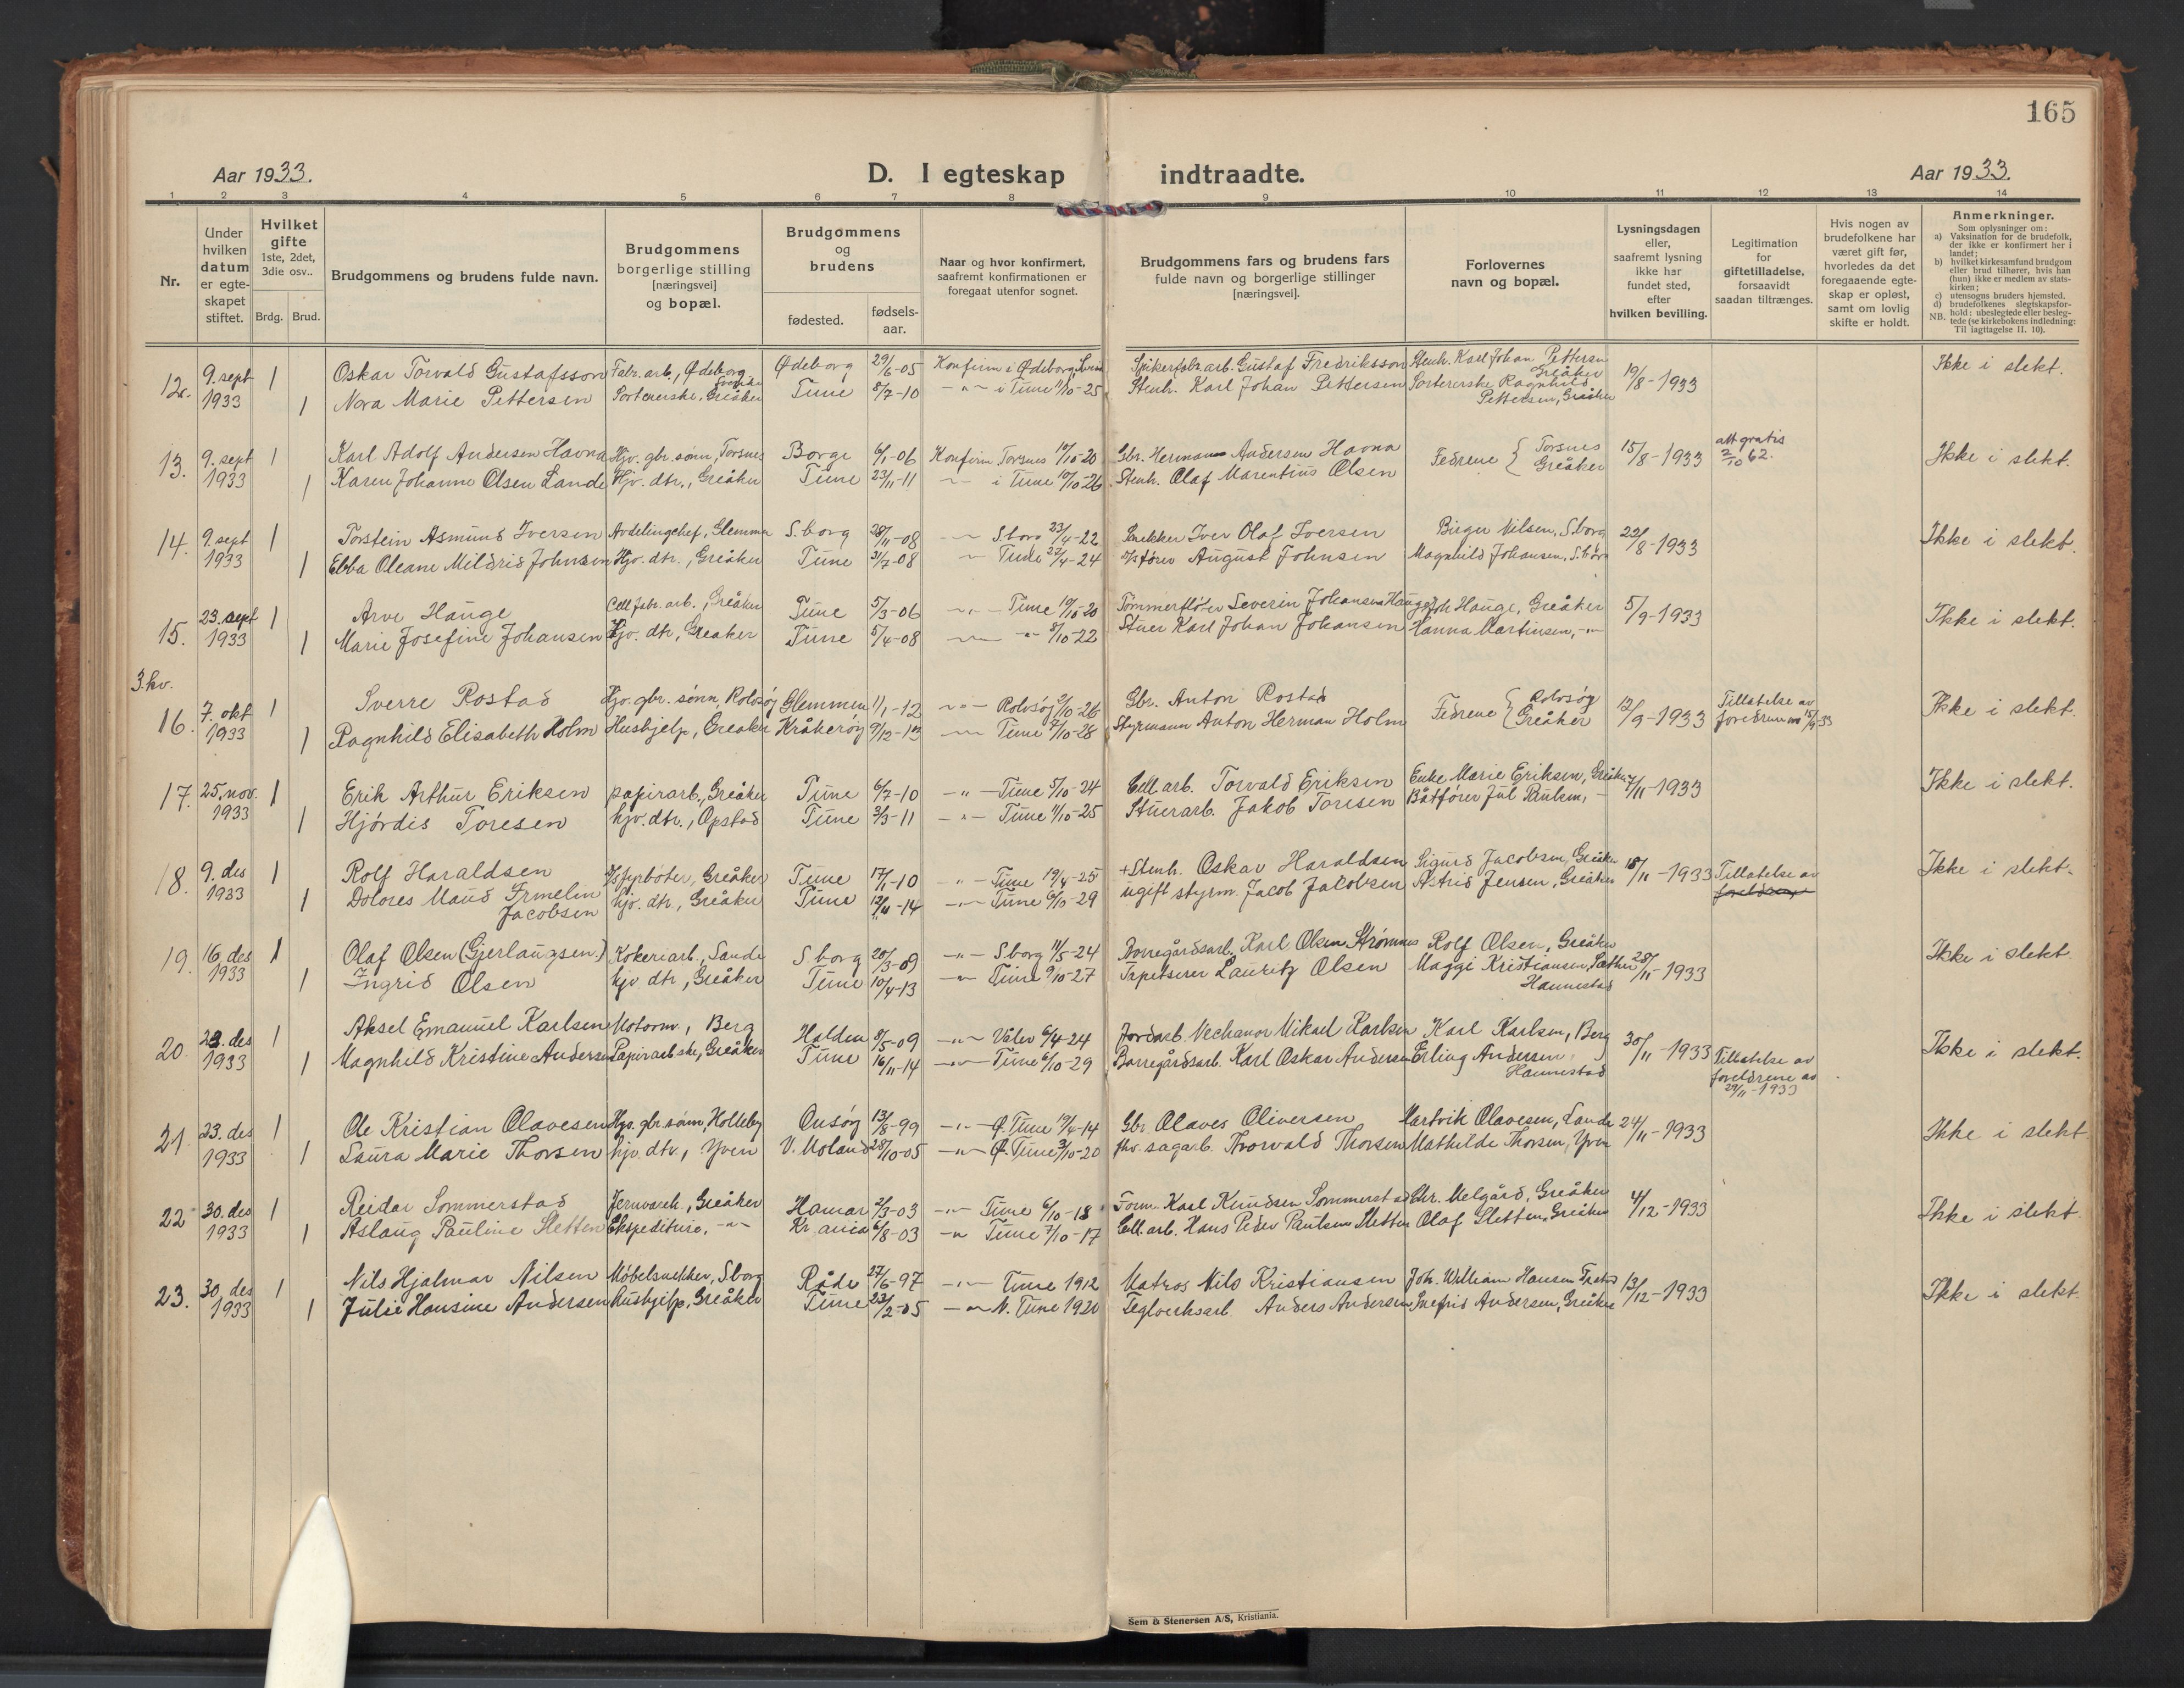 165
Aar 1933.
D. I egteskap indtraadte.
Aar 1933.
1 2 3 4 5 6 7 8 9 10 11 12 13 14
Nr.
Under hvilken datum er egteskapet stiftet.
Hvilket gifte 1ste, 2det, 3die osv..
Brdg. Brud.
Brudgommens og brudens fulde navn.
Brudgommens borgerlige stilling [næringsvei] og bopæl.
Brudgommens og brudens
fødested. fødselsaar.
Naar og hvor konfirmert, saafremt konfirmationen er foregaat utenfor sognet.
Brudgommens fars og brudens fars fulde navn og borgerlige stillinger [næringsvei].
Forlovernes navn og bopæl.
Lysningsdagen eller, saafremt lysning ikke har fundet sted, efter hvilken bevilling.
Legitimation for giftetilladelse, forsaavidt saadan tiltrænges.
Hvis nogen av brudefolkene har været gift før, hvorledes da det foregaaende egteskap er opløst, samt om lovlig skifte er holdt.
Anmerkninger.
Som oplysninger om:
a) Vaksination for de brudefolk, der ikke er konfirmert her i landet;
b) hvilket kirkesamfund brudgom eller brud tilhører, hvis han (hun) ikke er medlem av statskirken;
c) utensogns bruders hjemsted.
d) brudefolkenes slegtskapsforhold: ubeslegtede eller beslegtede (se kirkebokens indledning:
NB. Til iagttagelse II. 10).
12. 9. sept 1 Oskar Torvald Gustafsson Fabr. arb., Ødeborg Sverige Ødeborg 29/6-05 Konfirm i Ødeborg, Spikerfabr arb. Gustaf Fredriksson Stenh. Karl Johan Pettersen Greåker 19/8-1933 Ikke i slekt.
1933 1 Nora Marie Pettersen Sortererske, Greåker Tune 8/7-10 -"- i Tune 11/10-25 Stenh. Karl Johan Pettersen Sortererske Ragnhild Pettersen, Greåker
13. 9. sept 1 Karl Adolf Andersen Havna Hjv. gbr. sønn, Torsnes Borge 6/1-06 Konfirm Torsnes 10/10-20 Gbr. Herman Andersen Havna Fedrene { Torsnes 15/8-1933 att gratis 2/10 62. Ikke i slekt.
1933 1 Karen Johanne Olsen Lande Hjv. dtr., Greåker Tune 23/11-11 -"- i Tune 10/10-26 Stenh. Olaf Marentius Olsen Greåker
14. 9. sept 1 Torstein Asmund Iversen Avdelingchef, Glemmen S.borg 28/11-08 -"- Sborg 23/4-22 Snekker Iver Olaf Iversen Birger Nilsen, S.borg 22/8-1933 Ikke i slekt.
1933 1 Ebba Oleane Mildrid Johnsen Hjv. dtr., Greåker Tune 31/7-08 -"- Tune 27/4-24 August Johnsen Magnhild Johansen, S.borg
15. 23. sept 1 Arve Hauge Cell. fabr. arb., Greåker Tune 5/3-06 -"- Tune 10/10-20 Tømmerfløter Severin Johansen Hauge Joh Hauge, Greåker 5/9-1933 Ikke i slekt.
1933 1 Marie Josefine Johansen Hjv. dtr, Greaker Tune 5/4-08 -"- -"- 8/10-22 Stuer Karl Johan Johansen Hanna Martinsen, -"-
3. kv.
16. 7. okt 1 Sverre Rostad Hjv. gbr. sønn, Rolvsøy Glemmen 11/1-12 -"- Rolvsøy 3/10-26 Gbr. Anton Rostad Fedrene { Rolvsøy 12/9-1933 Tillatelse av Ikke i slekt.
1933 1 Ragnhild Elisabeth Holm Hushjelp, Greåker Kråkerøy 9/12-13 -"- Tune 7/10-28 Styrmann Anton Herman Holm Greåker foreldrene 15/9 33
17. 25. nov. 1 Erik Arthur Eriksen papirarb., Greåker Tune 6/7-10 -"- Tune 5/10-24 Cell. arb. Torvald Eriksen Enke Marie Eriksen, Greåker 7/11-1933 Ikke i slekt.
1933 1 Hjørdis Toresen hjv. dtr., Opstad Tune 2/3-11 -"- Tune 11/10-25 Stuerarb. Jakob Toresen Båtfører Jul Paulsen, -
18. 9. des 1 Rolf Haraldsen fyrbøter, Greåker Tune 17/1-10 -"- Tune 19/4-25 +Stenh. Oskar Haraldsen Sigurd Jacobsen, Greåker 18/11-1933 Tillatelse av Ikke i slekt.
1933 1 Dolores Maud Irmelin Jacobsen hjv. dtr, Greåker Tune 12/11-14 -"- Tune 6/10-29 ugift styrm. Jacob Jacobsen Astrid Jensen, Greåker foreldrene
19. 16. des 1 Olaf Olsen (Gjerlaugsen) Kokeriarb., Sande S.borg 20/3-09 -"- Sborg 11/5-24 Borregårdsarb. Karl Olsen Strømnes Rolf Olsen, Greåker 28/11-1933 Ikke i slekt.
1933 1 Ingrid Olsen hjv. dtr, Greåker Tune 10/4-13 -"- Tune 9/10-27 Tapetserer Lauritz Olsen Maggi Kristiansen, Hannestad
20. 23. des 1 Aksel Emanuel Karlsen Motorm., Berg Halden 8/5-09 -"- Våler 6/4-24 Jordarb. Mikael Karlsen Karl Karlsen, Berg 30/11-1933 Ikke i slekt.
1933 1 Magnhild Kristine Andersen Papirarb.ske, Greåker Tune 16/11-14 -"- Tune 6/10-29 Borregårdsarb. Karl Oskar Andersen Erling Andersen, Hannestad Tillatelse av foreldrene av 29/11-1933
21. 23. des 1 Ole Kristian Olavesen Hjv. gbr sønn, Holleby Onsøy 13/8-99 -"- Ø. Tune 19/4-14 Gbr Olaves Oliversen Hartvik Olavesen, Lande 24/11-1933 Ikke i slekt
1933 1 Laura Marie Thorsen hjv. dtr, Yven V. Moland 28/10-05 -"- Ø. Tune 3/10-20 fhv. sagarb. Thorvald Thorsen Mathilde Thorsen, Yven
22 30. des 1 Reidar Sommerstad Jernvareh., Greåker Hamar 2/3-03 -"- Tune 6/10-18 Form. Karl Knudsen Sommerstad Chr. Melgård, Greåker 4/12-1933 Ikke i slekt
1933 1 Aslaug Pauline Sletten Ekspeditrise, -"- Kr.ania 6/8-03 -"- Tune 7/10-17 Cell. arb. Hans Peder Paulsen Sletten Olaf Sletten, Greåker
23. 30. des 1 Nils Hjalmar Nilsen Møbelsnekker, Sborg Råde 27/6-97 -"- Tune 1912 Matros Nils Kristiansen Joh. William Hansen 13/12-1933 Ikke i slekt.
1933 1 Julie Hansine Andersen Hushjelp, Greåker Tune 23/2-05 -"- N. Tune 1920 Teglverksarb Anders Andersen Andersen, Greåker
Sem & Stenersen A/S, Kristiania.